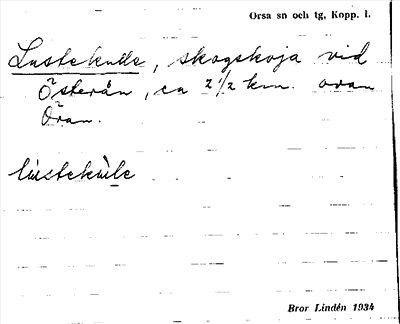 Orsa sn och tg, Kopp. l.
Lustekulle, skogskoja vid
Österån, ca 2 1/2 km. ovan
Öran.
Bror Lindén 1934